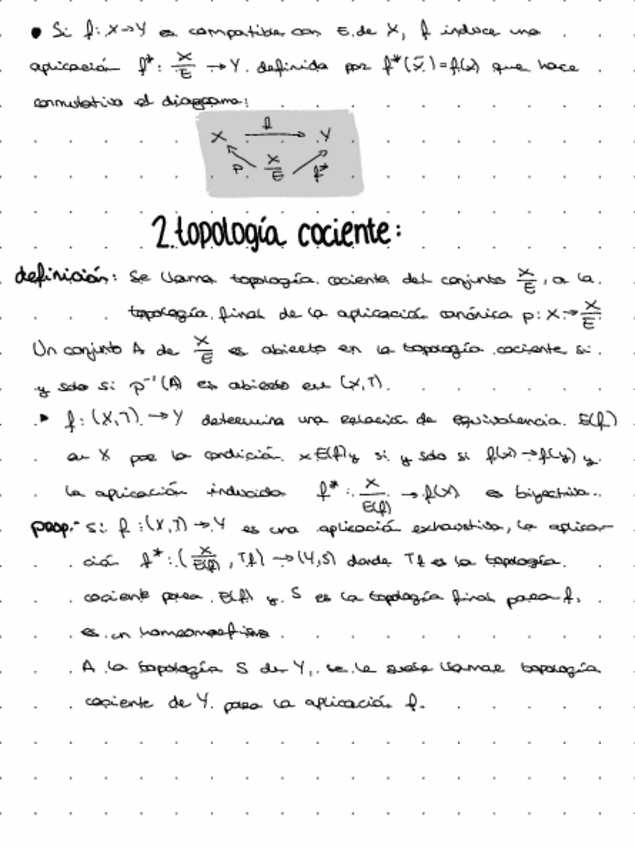 • Si f: X→Y es compatible con E de X, f induce una
aplicación f*: X/E → Y definida por f*(x̄)=f(x) que hace
conmutativo el diagrama:
X f Y
p X/E f*
2. topología cociente:
definición: Se llama topología cociente del conjunto X/E, a la
topología final de la aplicación canónica p: X→ X/E
Un conjunto A de X/E es abierto en la topología cociente si
y solo si p⁻¹(A) es abierto en (X,T).
▸ f: (X,T) → Y determina una relación de equivalencia E(f)
en X por la condición xE(f)y si y solo si f(x)→f(y) y
la aplicación inducida f*: X/E(f) → f(X) es biyectiva.
prop.- Si f: (X,T) → Y es una aplicación exhaustiva, la aplica-
ción f*: (X/E(f), Tf) → (Y,S) donde Tf es la topología
cociente para E(f) y S es la topología final para f,
es un homeomorfismo
A la topología S de Y, se le suele llamar topología
cociente de Y para la aplicación f.